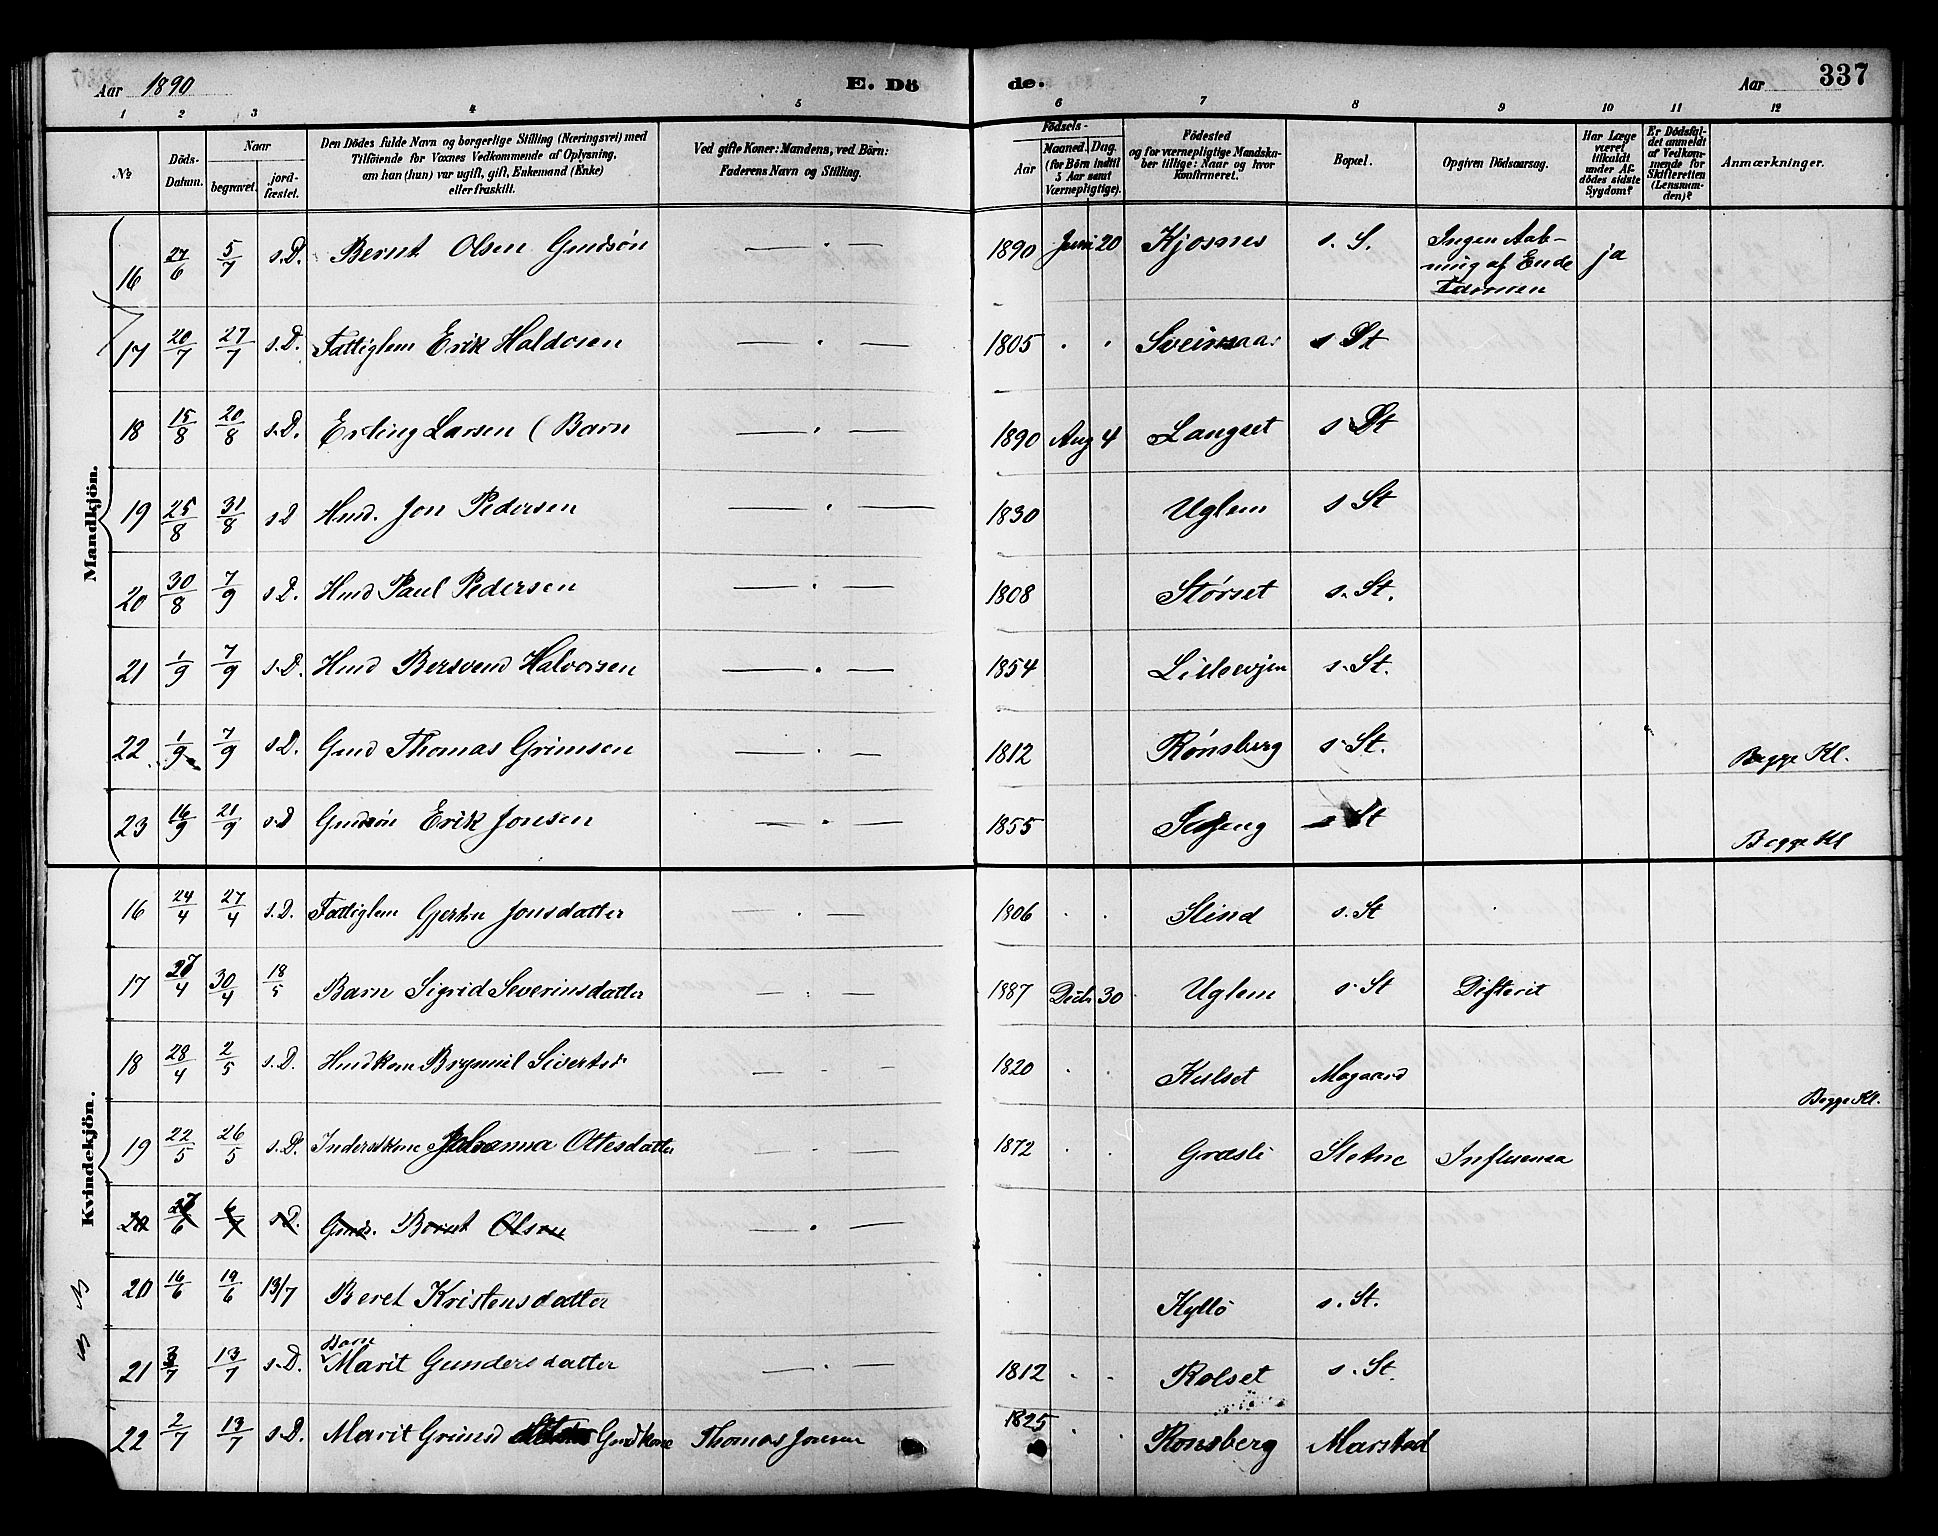 Aar 1890 E. Dö de. Aar 337
1 2 3 4 5 6 7 8 9 10 11 12
№
Döds-Datum.
Naar
begravet.
jord-fæstet.
Den Dödes fulde Navn og borgerlige Stilling (Næringsvei) med
Tilföiende for Voxnes Vedkommende af Oplysning,
om han (hun) var ugift, gift, Enkemand (Enke)
eller fraskilt.
Ved gifte Koner: Mandens, ved Börn:
Faderens Navn og Stilling.
Födsels-
Aar
Maaned. Dag.
(for Börn indtil
5 Aar samt
Værnepligtige).
Födested
og for værnepligtige Mandska-
ber tillige: Naar og hvor
konfirmeret.
Bopæl.
Opgiven Dödsaarsag.
Har Læge
været
tilkaldt
under Af-
dödes sidste
Sygdom?
Er Dödsfal-
det anmeldt
af Vedkom-
mende for
Skifteretten
(Lensman-
den)?
Anmærkninger.
Mandkjön.
16 27/6 5/7 s.D. Bernt Olsen Gmdsön — . — 1890 Juni 20 Kjosnes s. S. Ingen Aab-
ning af Ende
Tarmen ja
17 20/7 27/7 s.D. Fattiglem Erik Haldosen — . — 1805 . . s St
18 15/8 20/8 s.D. Erling Larsen ( Barn — . — 1890 Aug 4 Langset s St
19 25/8 31/8 s D Hmd. Jon Pedersen — . — 1830 Uglem s St
20 30/8 7/9 s D. Hmd Paul Pedersen — . — 1808 Störset s. St.
21 1/9 7/9 s.D. Hmd Bersvend Halvorsen — . — 1854 Lillevjen s. St.
22 1/9 7/9 s D. Gmd Thomas Grimsen — . — 1812 Rönsberg s. St. Begge Kl.
23 16/9 21/9 s D Gmdsön Erik Jonsen — . — 1855 s St Begge Kl
Kvindekjön.
16 24/4 27/4 s.D. Fattiglem Jonsdatter — . — 1806 . . Slind s. St
17 27/4 30/4 18/5 Barn Sigrid Severinsdatter — . — 1887 Decbr 30 Uglem s. St Difterit
18 28/4 2/5 s.D. Hmdkone Sivertsd — . — 1820 . . Kulset Mogaard
Begge Kl.
19 22/5 26/5 s.D. Inderstkone Johanna Ottesdatter — . — 1872 . . Græsli Influensa
20 27/6 6/7 s.D. Gmds. Bernt Olsen — . —
20 16/6 19/6 13/7 Beret Kristensdatter Kyllö s. St.
21 3/7 13/7 s.D. Barn Marit Gundersdatter — . — 1812 . . Rolset s. St.
22 2/7 13/7 s.D. Marit Grimsd Gmdkone Thomas Jonsen 1825 . . Rönsberg Marstad